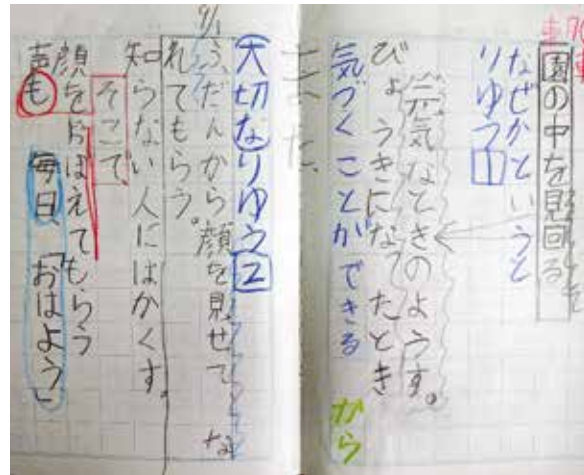 園の中を見回る
なぜかというと
りゆう1
元気なときのようす。
びょうきになったとき
気づくことができるから
大切なりゆう2
ふだんから顔を見せてな
れてもらう。
知らない人にはかくす。
そこで、
顔をおぼえてもらう
声も毎日、「おはよう」